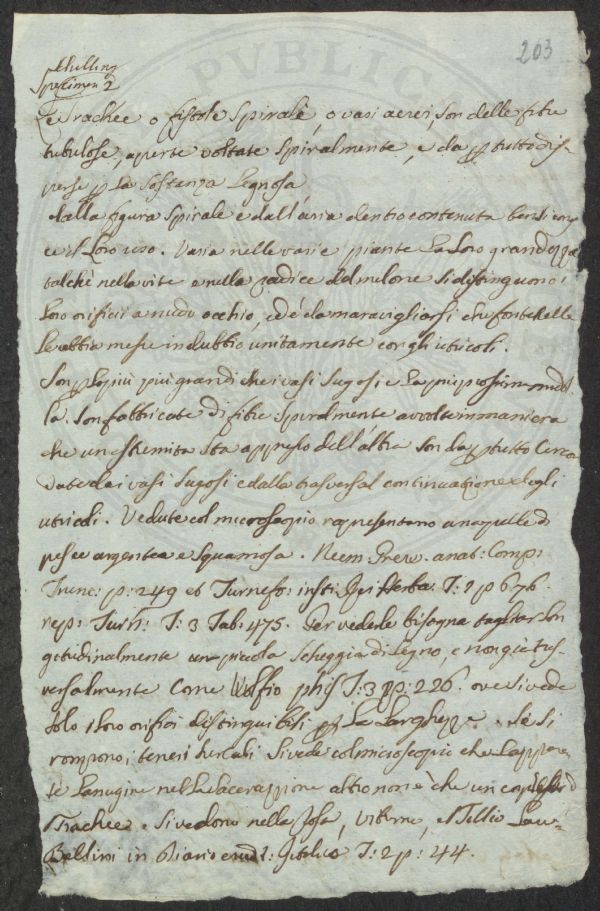 203
Specimen 2
Le Trachee o fistole spirali, o vasi aerei, son delle fibre
tubulose, aperte voltate spiralmente, e da p tutto dis-
perse p la sostanza legnosa
dalla figura spirale e dall'aria dentro contenuta
ce il loro uso. Varia nelle varie piante la loro grandezza
talchè nella vite e nella radice del melone si distinguono i
loro orifici a nudo occhio, ed è da maravigliarsi che
mese in dubbio unitamente con gli utricoli.
Son p lo più più grandi che i vasi sugosi e
la. Son fabbricate di fibre spiralmente avvolte in maniera
che un estremità sta appresso dell'altra son da p tutto circon
date da i vasi sugosi e dalla trasversal continuazione degli
utricoli. Vedute col microscopio rapresentano una pelle di
pesce argentea e squamosa. Neem. Grew. anat: Comp:
Trunc: p: 249 et Turnefo: insti: Rei Herba: T: 1 p 676.
rep: Turn: T: 3 Tab: 475. Per vederle bisogna tagliar lon
gitudinalmente una picola scheggia di legno, e non già tras-
versalmente come Wolfio phis T: 3 pp: 226. ove si vede
solo i loro orifici distinguibili p la larghezza. Se si
rompono i teneri surculi si vede col microscopio che l'apparen
te lanugine nella lacerazione altro non è che un
Trachee e si vedono nella Rosa, Viburno, e Tillio
Bellini in Diario erud: Italico T: 2 p: 44.